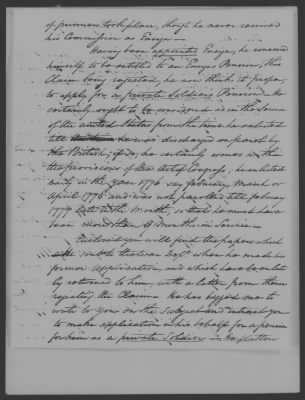 of prisoners to this place, though he never received
his Commission as Ensign —
Having been appointed Ensign, he conceived
himself to be entitled to an Ensigns Pension, this
Claim being rejected, he now thinks it proper,
to apply for a private Soldiers Pension. He
certainly ought to be considered as in the Service
of the United States from the time he enlisted
till he was discharged on parole by
the British; if so, he certainly comes within
the provisions of the Act of Congress, he enlisted
early in the year 1776 say February, March or
April 1776 and was not paroled till February
1777 late in the Month, so that he must have
been more than 9 Months in Service —
Enclosed you will find the papers which
were sent to the War Dept when he made his
former application, and which have been lately
returned to him, with a letter from them
rejecting the Claim. He has begged me to
write to you on the Subject and intreat you
to make application in his behalf for a pension
for him as a private Soldier in the